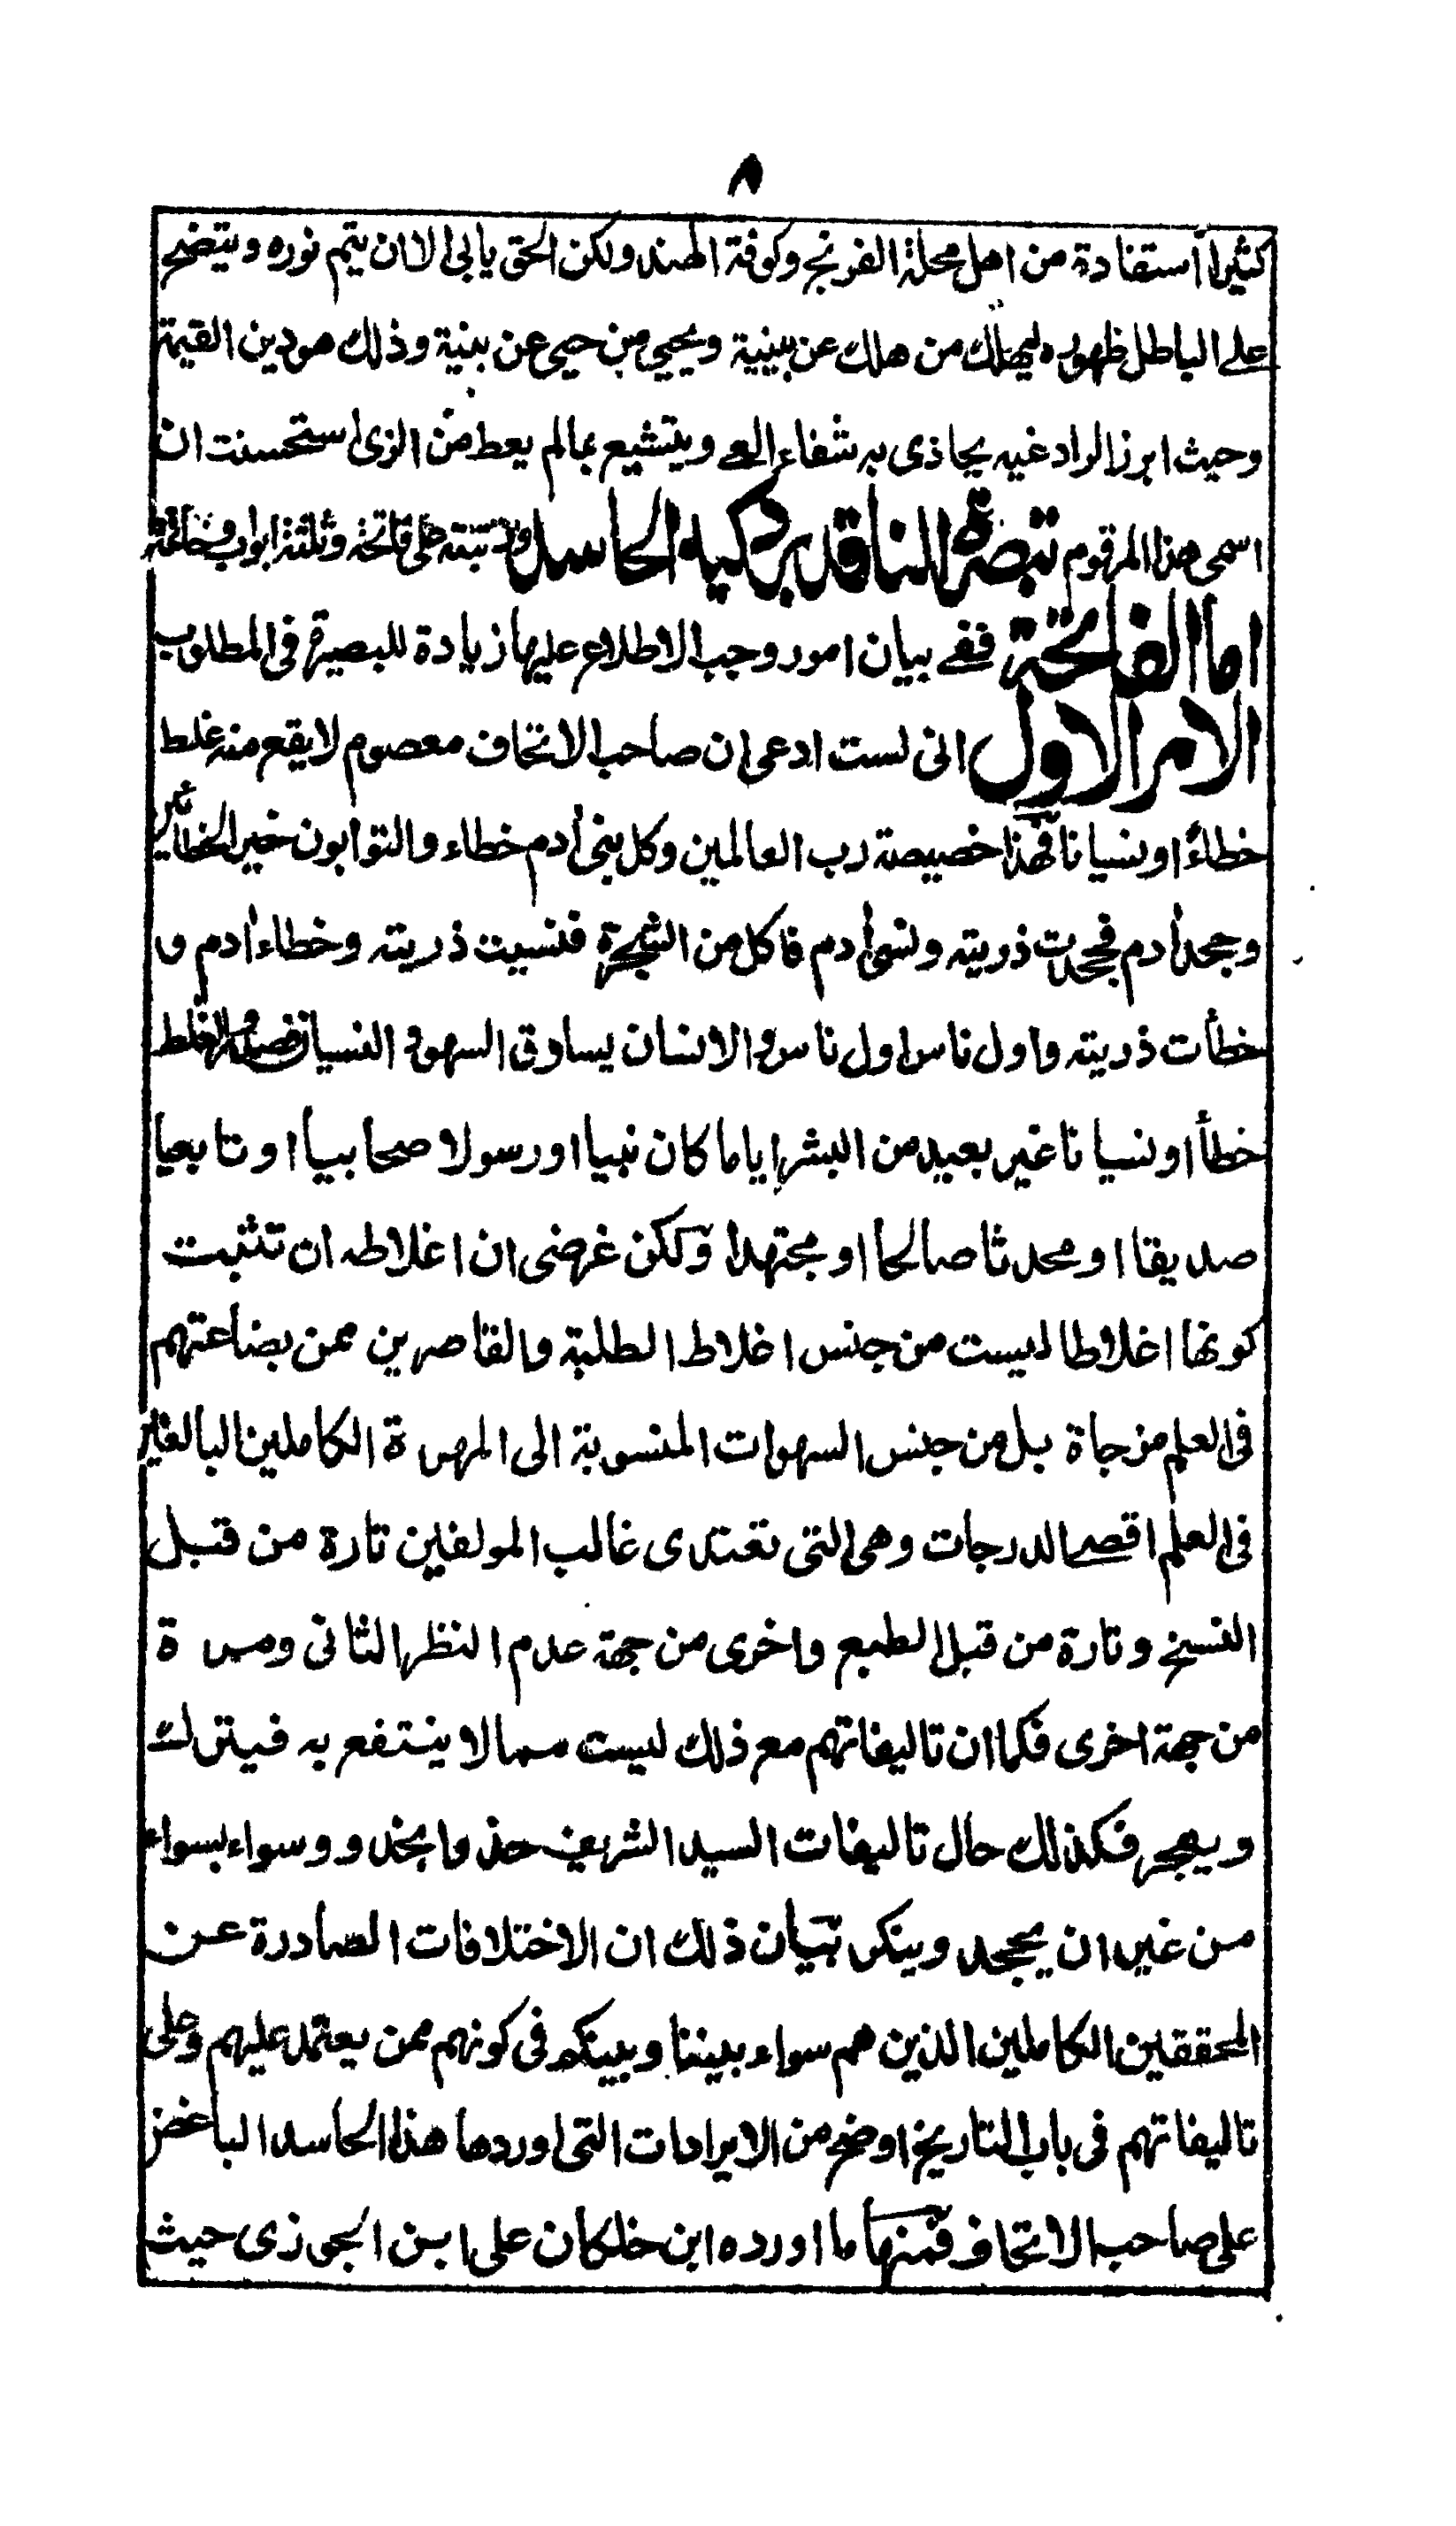 ٨
كثيرا استفادة من اهل محلة الفرنج وكوفة الهند ولكن الحق يابى الا ان يتم نوره ويتضح
على الباطل ظهوره ليهلك من هلك عن بينة ويحيى من حيى عن بينة وذلك هو دين القيمة
وحيث ابرز الراد غيه يحاذى به شفاء العى ويتشبع بمالم يعط من الزى استحسنت ان
اسمى هذا المرقوم تبصرة الناقد برد كيد الحاسد ورتبته على فاتحة وثلثة ابواب وخاتمة
اما الفاتحة ففى بيان امور وجب الاطلاع عليها زيادة للبصيرة فى المطلوب
الامر الاول انى لست ادعى ان صاحب الاتحاف معصوم لا يقع منه غلط
خطاءً اونسيانا فهذا خصيصة رب العالمين وكل بنى ادم خطاء والتوابون خير الخطائين
وجحد ادم فجحدت ذريته ونسى ادم فاكل من الشجرة فنسيت ذريته وخطاء ادم و
خطأت ذريته واول ناس اول ناس والانسان يساوق السهو والنسيان فصدور الغلط
خطأ اونسيانا غير بعيد من البشر اياما كان نبيا اورسولا صحابيا اوتابعيا
صديقا اومحدثا صالحا اومجتهدا ولكن غرضى ان اغلاطه ان تثبت
كونها اغلاطا ليست من جنس اغلاط الطلبة والقاصرين ممن بضاعتهم
فى العلم مزجاة بل من جنس السهوات المنسوبة الى المهرة الكاملين البالغين
فى العلم اقصى الدرجات وهى التى تعترى غالب المولفين تارة من قبل
النسخ وتارة من قبل الطبع واخرى من جهة عدم النظر الثانى ومرة
من جهة اخرى فكما ان تاليفاتهم مع ذلك ليست مما لا ينتفع به فيترك
ويهجر فكذلك حال تاليفات السيد الشريف حذوا بحذو وسواء بسواء
من غير ان يجحد وينكر بيان ذلك ان الاختلافات الصادرة عن
المحققين الكاملين الذين هم سواء بيننا وبينكم فى كونهم ممن يعتمد عليهم وعلى
تاليفاتهم فى باب التاريخ اوضح من الايرادات التى اوردها هذا الحاسد الباغض
على صاحب الاتحاف فمنها ما اورده ابن خلكان على ابن الجوزى حيث